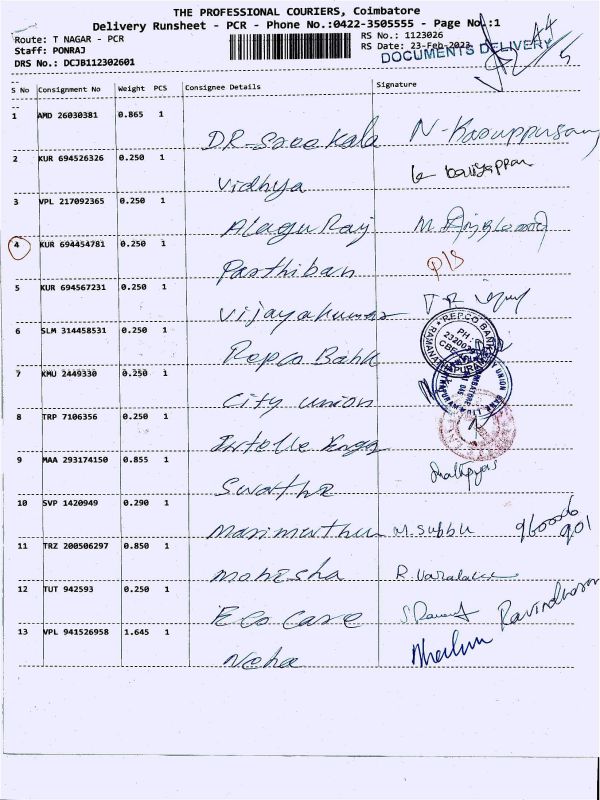 THE PROFESSIONAL COURIERS, Coimbatore
Delivery Runsheet - PCR - Phone No.:0422-3505555 - Page No.:1
Route: T NAGAR - PCR
RS No.: 1123026
Staff: PONRAJ
RS Date: 23-Feb-2023
DRS No.: DCJB112302601
DOCUMENTS DELIVERY
S No Consignment No Weight PCS Consignee Details Signature
1 AMD 26030381 0.865 1
DR-Sree Kala N-Karuppusamy
2 KUR 694526326 0.250 1
Vidhya
3 VPL 217092365 0.250 1
Alagu Raj M.
4 KUR 694454781 0.250 1
Parthiban P/S
5 KUR 694567231 0.250 1
Vijayakumar
6 SLM 314458531 0.250 1
Repco Bank
REPCO BANK
PH :
7 KMU 2449330 0.250 1
City union
8 TRP 7106356 0.250 1
Intelle Engg
9 MAA 293174150 0.855 1
Swathe
10 SVP 1420949 0.290 1
Marimuthu M. Subbu
11 TRZ 200506297 0.850 1
Mohisha R.
12 TUT 942593 0.250 1
Eco Care Ravindharan
13 VPL 941526958 1.645 1
Neha